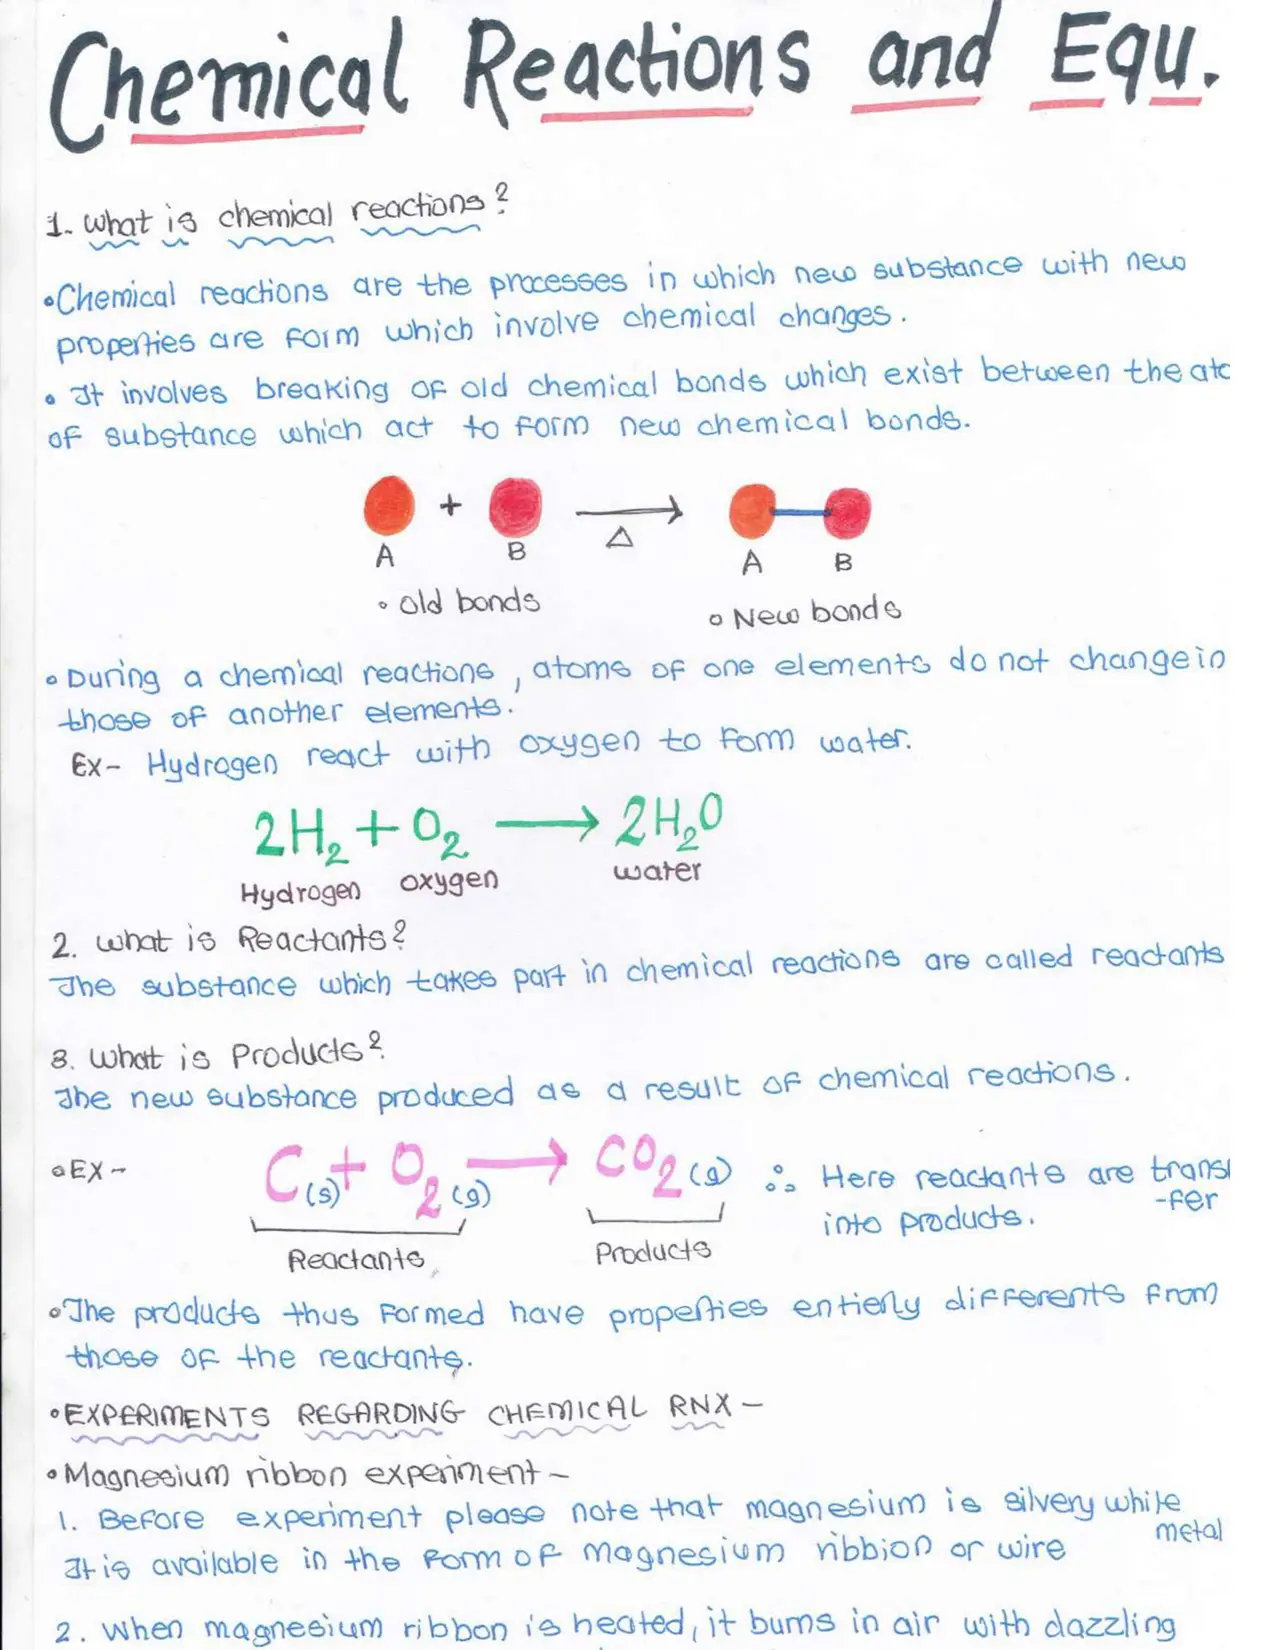 Chemical Reactions and Equ.
1. What is chemical reactions?
•Chemical reactions are the processes in which new substance with new
properties are form which involve chemical changes.
• It involves breaking of old chemical bonds which exist between the ato
of substance which act to form new chemical bonds.
+ → Δ
A B A B
• Old bonds • New bonds
• During a chemical reactions, atoms of one elements do not change in
those of another elements.
Ex- Hydrogen react with oxygen to form water.
2H₂ + O₂ → 2H₂O
Hydrogen oxygen water
2. What is Reactants?
The substance which takes part in chemical reactions are called reactants
3. What is Products?
The new substance produced as a result of chemical reactions.
•EX- C(s) + O₂(g) → CO₂(g) ∴ Here reactants are trans
-fer
into products.
Reactants Products
•The products thus formed have properties entierly differents from
those of the reactants.
•EXPERIMENTS REGARDING CHEMICAL RNX -
•Magnesium ribbon experiment -
1. Before experiment please note that magnesium is silvery white
metal
It is available in the form of magnesium ribbion or wire
2. When magnesium ribbon is heated, it burns in air with dazzling